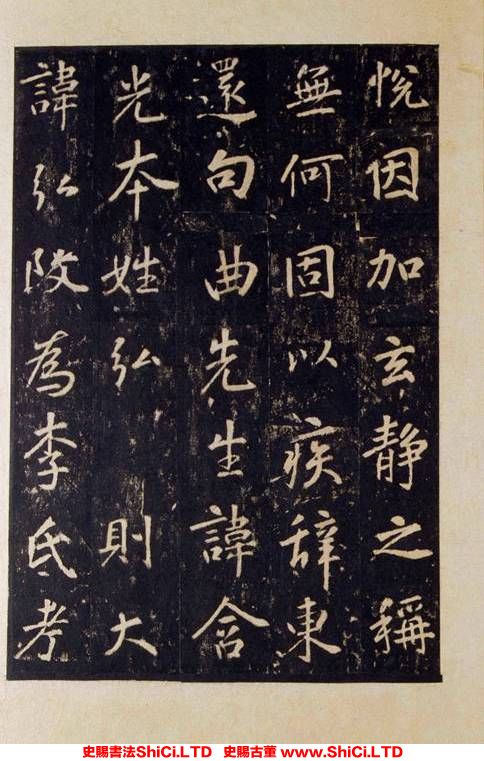 悅因加玄静之稱
無何固以疾辞東
還句曲先生諱含
光本姓弘 則大
諱弘改為李氏考
史賜書法ShiCi.LTD 史賜古董 www.ShiCi.LTD